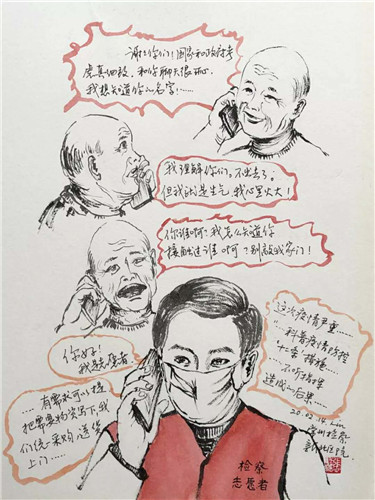 谢谢你们！国家和政府考
虑真细致，和你聊天很开心，
我想知道你的名字！……
我理解你们。不出去了。
但我就是生气，我心里火大！
你谁啊？我怎么知道你
接触过谁啊？别敲我家门！
你好！
我是志愿者
这次疫情严重……
……科普疫情防控
措施……
……不听指挥
造成的后果……
……有需求可以提
把需要物资写下，我
们统一采购，送货
上门……
20.02.14. Lin
常州检察
新北区院
检察
志愿者